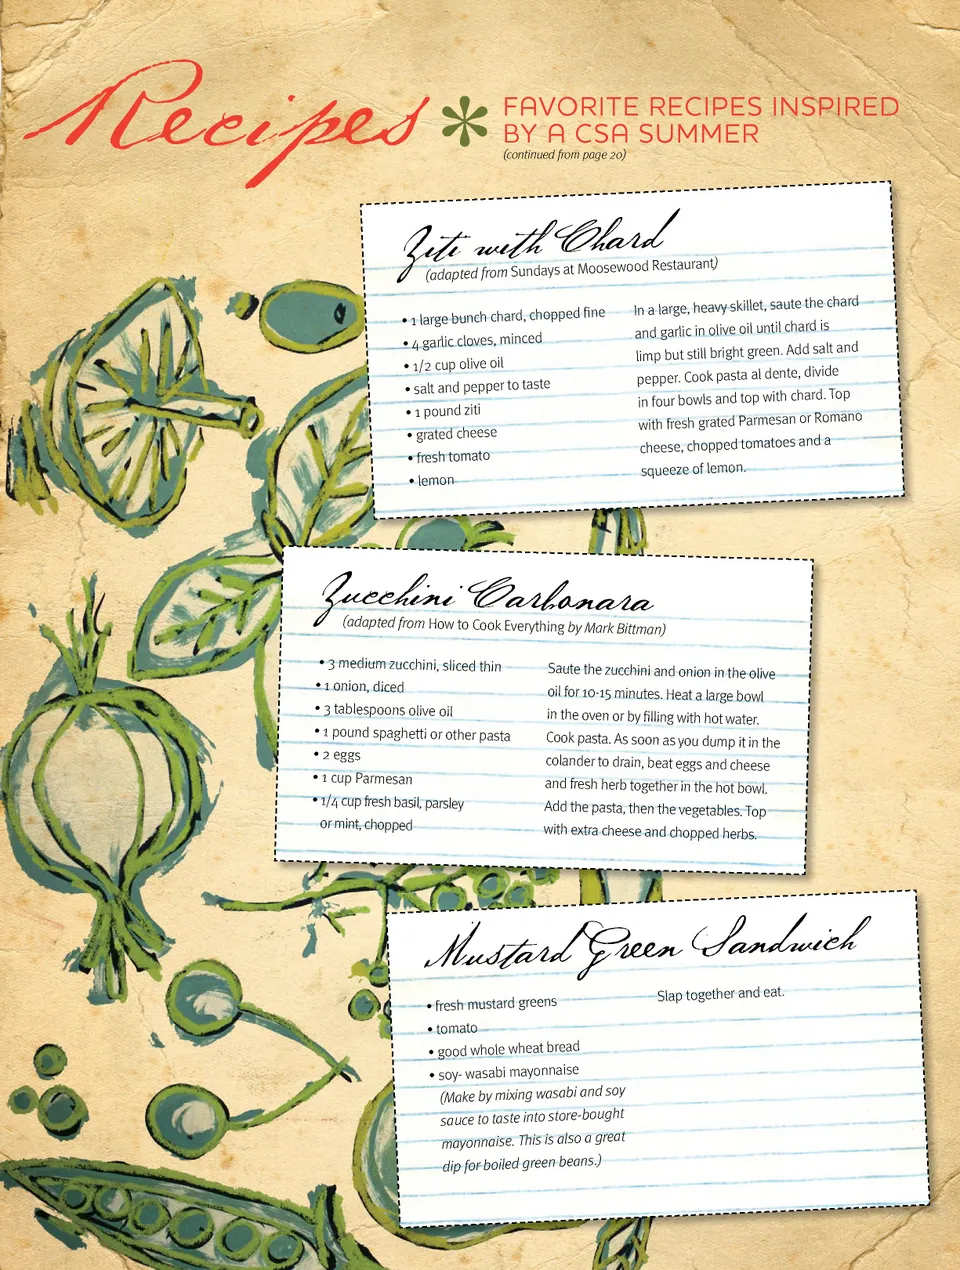 Recipes
FAVORITE RECIPES INSPIRED
BY A CSA SUMMER
(continued from page 20)
Ziti with Chard
(adapted from Sundays at Moosewood Restaurant)
• 1 large bunch chard, chopped fine
• 4 garlic cloves, minced
• 1/2 cup olive oil
• salt and pepper to taste
• 1 pound ziti
• grated cheese
• fresh tomato
• lemon
In a large, heavy skillet, saute the chard
and garlic in olive oil until chard is
limp but still bright green. Add salt and
pepper. Cook pasta al dente, divide
in four bowls and top with chard. Top
with fresh grated Parmesan or Romano
cheese, chopped tomatoes and a
squeeze of lemon.
Zucchini Carbonara
(adapted from How to Cook Everything by Mark Bittman)
• 3 medium zucchini, sliced thin
• 1 onion, diced
• 3 tablespoons olive oil
• 1 pound spaghetti or other pasta
• 2 eggs
• 1 cup Parmesan
• 1/4 cup fresh basil, parsley
or mint, chopped
Saute the zucchini and onion in the olive
oil for 10-15 minutes. Heat a large bowl
in the oven or by filling with hot water.
Cook pasta. As soon as you dump it in the
colander to drain, beat eggs and cheese
and fresh herb together in the hot bowl.
Add the pasta, then the vegetables. Top
with extra cheese and chopped herbs.
Mustard Green Sandwich
• fresh mustard greens
• tomato
• good whole wheat bread
• soy- wasabi mayonnaise
(Make by mixing wasabi and soy
sauce to taste into store-bought
mayonnaise. This is also a great
dip for boiled green beans.)
Slap together and eat.